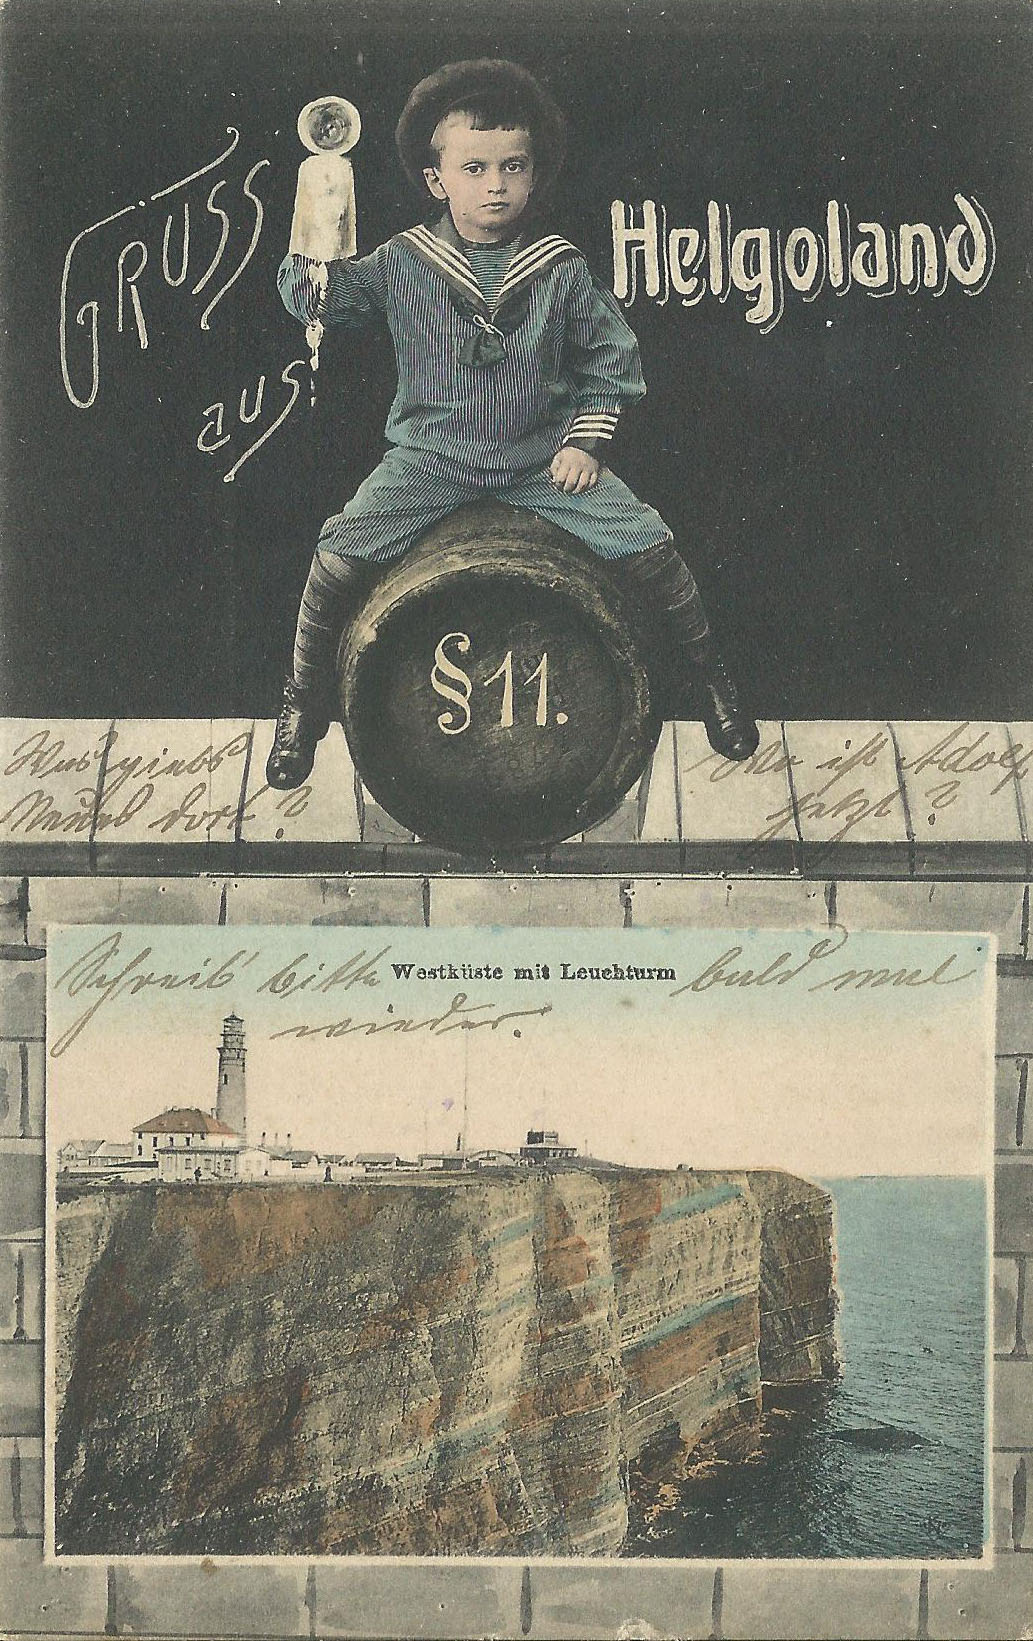 GRÜSS
aus
Helgoland
§ 11.
Was giebts
Neues dort?
Wo ist Adolf
jetzt?
Westküste mit Leuchturm
Schreib' bitte bald mal
wieder.